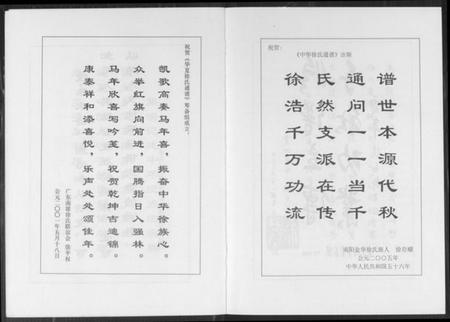 祝贺《华夏徐氏通谱》筹备组成立：
凯歌高奏马年喜，振奋中华徐族心。
众举红旗向前进，国腾指日入强林。
马年欣喜写吟笺，祝贺乾坤吉逾锦。
康泰祥和添喜悦，乐声处处颂佳年。
广东南雄徐氏联谊会
公元二〇〇一年五月十八日
祝贺：
《中华徐氏通谱》出版
谱世本源代秋
通问一一当千
氏然支派在传
徐浩千万功流
南阳金华徐氏族人
公元二〇〇五年
中华人民共和国五十六年